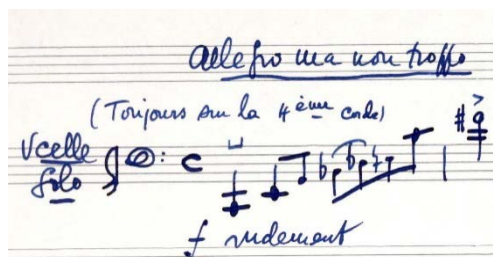 allegro ma non troppo
(Toujours sur la 4ème corde)
Vcelle
Solo
f rudement